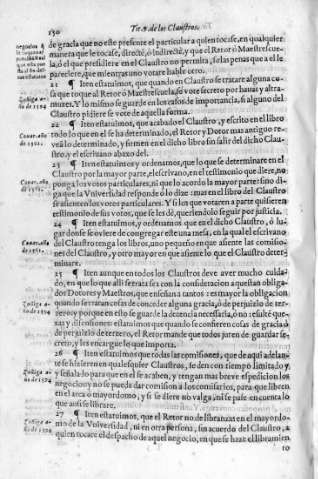 150
Tit. 9. de los Claustros.
de gracia que no este presente el particular a quien tocase, en qualquier
manera que le tocase, directè, o indirectè, y que el Retor o Maestrescue
la, ó el que presidiere en el Claustro no permita, so las penas que a el le
pareciere, que mientras uno votare hable otro.
21 ¶ Iten estatuimos, que quando en Claustro se tratare alguna co-
sa que toque al Retor ó Maestrescuela, se vote secreto por havas y altra-
muzes. Y lo mismo se guarde en los casos de importancia, si alguno del
Claustro pidiere se vote de aquella forma.
22 ¶ Iten estatuimos, que acabado el Claustro, y escrito en el libro
todo lo que en el se ha determinado, el Retor y Dotor mas antiguo re-
veá lo determinado, y firmen en el dicho libro sin salir del dicho Claus-
tro, y el escrivano abaxo del.
23 ¶ Iten estatuimos y ordenamos, que lo que se determinare en el
Claustro por la mayor parte, el escrivano, en el testimonio que diere, no
ponga los votos particulares, sino que lo acordo la mayor parte: sino di-
ga, que la Universidad responde o lo dize: mas en el libro del Claustro
se assienten los votos particulares. Y si los que votaren a parte quisieren
testimonio de sus votos, que se les dé, queriendolo seguir por justicia.
24 ¶ Iten estatuimos, y ordenamos que en el dicho Claustro, ó lu-
gar donde se oviere de congregar este una mesa, en la qual el escrivano
del Claustro tenga los libros, uno pequeño en que asiente las comisio-
nes del Claustro, y otro mayor en que asiente lo que el Claustro deter-
minare.
25 ¶ Iten aunque en todos los Claustros deve aver mucho cuida-
do, en que lo que alli se trata sea con la consideracion a questan obliga-
dos Dotores y Maestros, que enseñan tantos: es mayor la obligacion
quando se tratan cosas de conceder alguna gracia, ó de perjuizio de ter-
cero: y porque en esto se guarde la decencia necessaria, ó no resulte que-
xa: y disensiones: estatuimos que quando se confieren cosas de gracia ó
de perjuizio de tercero, el Retor mande que todos juren de guardar se-
creto, y les encargue lo que importa.
26 ¶ Iten estatuimos que todas las comisiones, que de aqui adelan-
te se hizieren en qualesquier Claustros, se den con tiempo limitado y
y señalado para que en el se acaben, y tengan mas breve espedicion los
negocios y no se pueda dar comision a los comisarios, para que libren
en el arca ò mayordomo, y si se diere no valga, ni se pase en cuenta lo
que ansi se librare.
27 ¶ Iten estatuimos, que el Retor no de libranzas en el mayordo-
mo de la Universidad, ni en otra persona, sin acuerdo del Claustro, a
quien tocare el despacho de aquel negocio, en que se haze el libramien
to